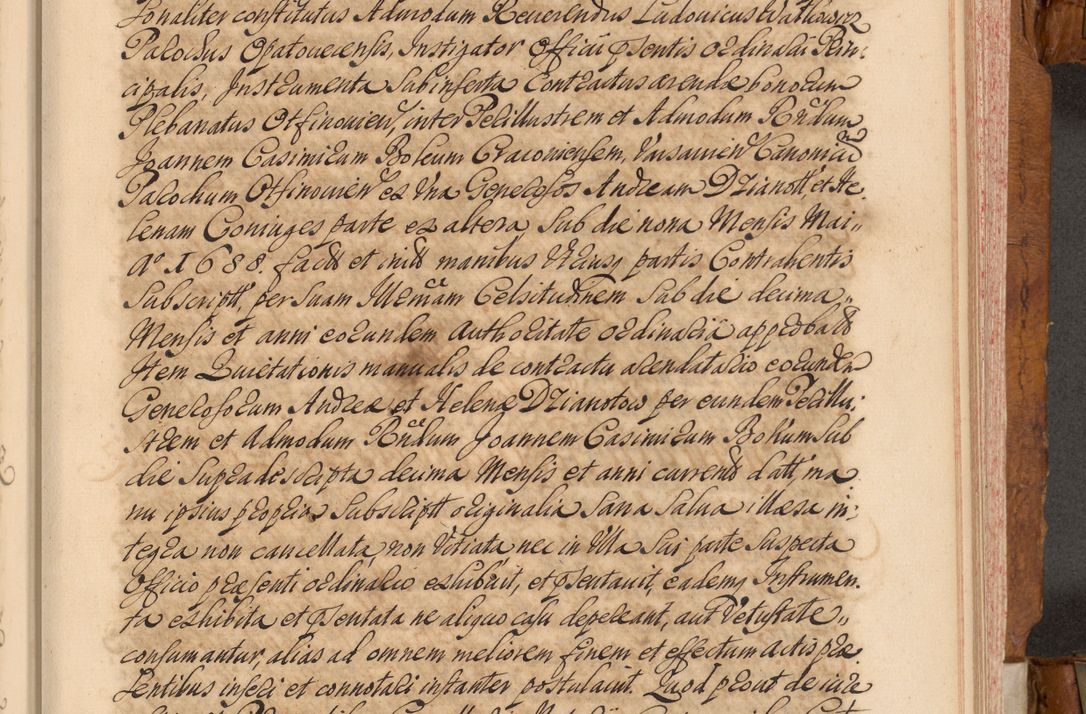 sonaliter constitutus Admodum Reuerendus Ludovicus
Parochus Opatouecensis, Instigator Officii psentis ordinarii Prin:
cipalis, Instrumenta Sub inserta Contractus arendæ bonorum
Plebanatus Otfinouien, inter Perillustrem et Admodum Rndum
Joannem Casimirum Boleum Cracouiensem, Varsauien Canonicũ
Parochum Otfinouien ex Vna Generosos Andream Dzianott, et He
lenam Coniuges parte ex altera Sub die nona Mensis Maii
Ao 1688. fact et init manibus Vtriusq partis Contrahentis
Subscript, per Suam Illmam Celsitudinem Sub die decima
Mensis et anni eorundem Authoritate ordinaria approbat
Item Quietationis manualis de contractu arendatario eorunden
Generosorum Andreæ et Helenæ Dzianotow per eundem Perillu:
strem et Admodum Rndum Joannem Casimirum Boleum Sub
die Supradescripta decima Mensis et anni current datt, ma
nu ipsius propria Subscriptt originalia Sana Salua illæsa in:
tegra non cancellata, non Vitiata nec in Vlla Sui parte Suspecta
Officio præsenti ordinario exhibuit, et psentauit, eademq Instrumen
ta exhibita et psentata ne aliquo casu depereant, aut Vetustate
consumantur, alias ad omnem meliorem finem et effectum actis præ
sentibus inseri et connotari instanter postulauit. Quod prout de iure